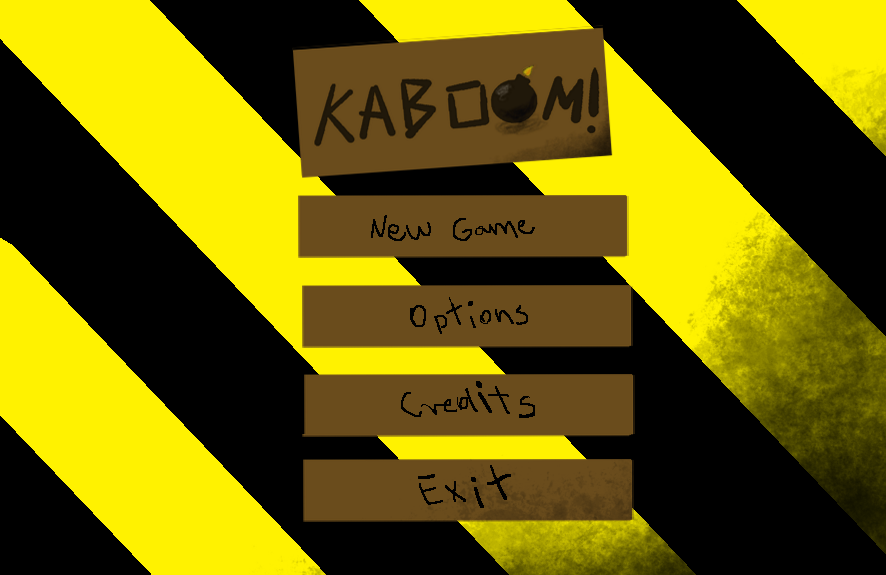 KABOOM!
New Game
Options
Credits
Exit